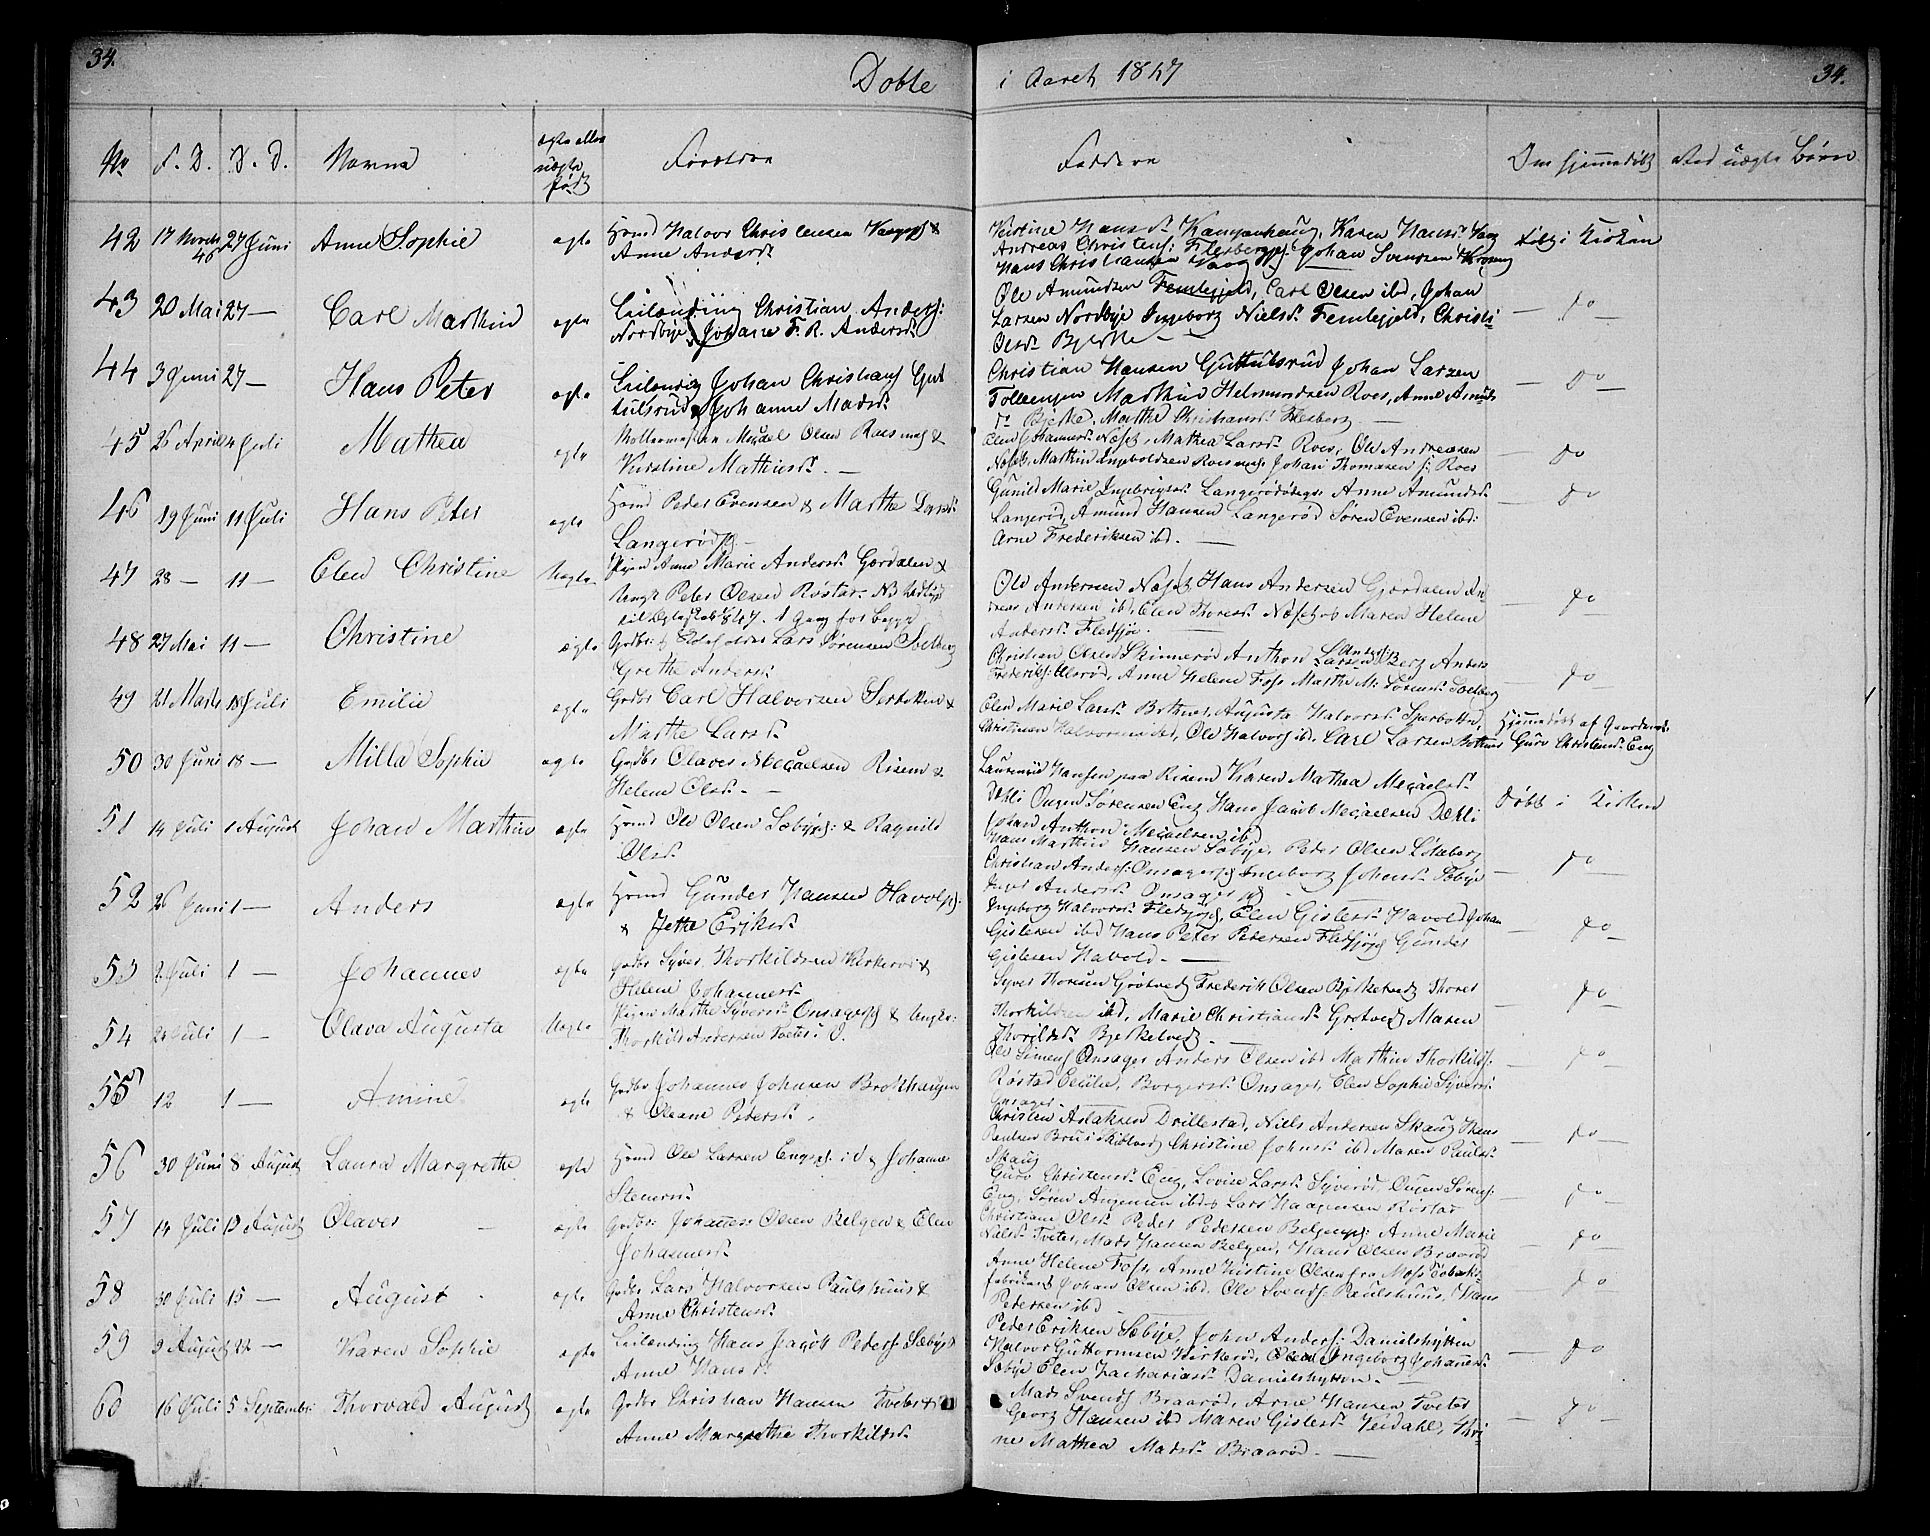 34.
Døbte
i Aaret 1847
34.
No
F. D.
D. D.
Navne
ægte eller uægte født
Forældre
Faddere
Om hjemmedøbt
Ved uægte Børn
42 17 Novebr 46 27 Juni Anne Sophie ægte Hmd Halvor Christensen Vaagpl &
Anne Andersd.
Kirstine Hansd. Kampenhaug, Karen Hansd. Vaag
Andreas Christens: Flesbergpl. Johan Svensen
Hans Christiansen Vaag
døbt i Kirken
43 20 Mai 27 — Carl Marthin ægte Leilænding Christian Anders:
Nordbye & Johane F. R. Andersd.
Ole Amundsen Femlegjeld, Carl Olsen ibd, Johan
Larsen Nordbye Ingeborg Nielsd. Femlegjeld, Christi-
Olsd. Bjerke —
— do —
44 3 Juni 27 — Hans Peter ægte Leilænding Johan Christians Gut
tulsrud & Johanne Madsd.
Christian Hansen Guttulsrud Johan Larsen
Tollengen Marthin Helmundsen Roes, Anne Amunds
d. Bjerke, Marthe Christiansd. Flesberg —
— do —
45 26 April 4 Juli Mathea ægte Møllermester Michael Olsen Roesmag &
Kirstine Mathisd. —
Elen Johannesd. Næss, Mathea Larsd. Roes, Ole Andreasen
Næss, Marthin Ingvoldsen Roesmag Johan Thomasen Roes
— do
46 19 Juni 11 Juli Hans Peter ægte Hmd Peder Evensen & Marthe Larsd.
Langerødpl —
Gunild Marie Ingebrigtsd. Langerødødeg. Anne Amundsd.
Langerød, Amund Hansen Langerød Søren Evensen ibd:
Arne Frederiksen ibd. —
— do
47 28 — 11 — Elen Christine Uægte Pigen Anne Marie Andersd. Gjerdalen &
Ungk Peter Olsen Røstad
1847. 1 Gang for begge
Ole Andersen Næss Hans Andersen Gjerdalen An-
dreas Andersen ibd, Elen Thoresd. Næss & Maren Helene
Andersd. Fledsjøe. —
— do —
48 27 Mai 11 — Christine ægte Gdbr: & Lars Sørensen Solberg
Grethe Andersd.
Christian Olsen Skinnerød Anthon Larsen Berg Anders
Frederiks: Ulsrød, Anne Helene Foss Marthe M. Sørensd. Solberg
— do —
49 21 Marts 18 Juli Emilie ægte Gdbr Carl Halvorsen Sperbotten &
Marthe Larsd.
Elen Marie Larsd. Bothner, Augusta Halvorsd. Sperbotten,
Christian Halvorsen ibd, Ole Halvors ibd. Carl Larsen Bothner
Hjemmedøbt af Gaardmand
Guro Christensd. Eng
50 30 Juni 18 — Milla Sophie ægte Gdbr Olaves Micaelsen Risem &
Helene Olsd. —
Laurentius Hansen paa Risem Karen Mathea Micaelsd.
Dæhli Ougen Sørensen Eng Hans Jacob Micaelsen Dæhli
Johan Anthon Micaelsen ibd
Døbt i Kirken
51 14 Juli 1 August Johan Marthin ægte Hmd Ole Olsen Sæbypl: & Ragnild
Olsd.
Hans Marthin Hansen Sæbye, Peder Olsen Løkeberg
Christian Anders: Onsagerpl Ingeborg Johansd. Sæbye
Andersd. Onsagerpl —
— do —
52 26 Juni 1 — Anders ægte Hmd Gunder Hansen Havolpl:
& Jette Eriksd.
Ingeborg Halvorsd. Fledsjøpl, Elen Gislesd. Havold Johan
Gislesen ibd Hans Peter Petersen Fledsjøpl Gunder
Gislesen Havold. —
— do —
53 2 Juli 1 — Johannes ægte Gdbr Syver Thorkildsen Kirkerød &
Helene Johannesd.
Syver Thorsen Grøtvedt Frederik Olsen Bjelketvedt Thorer
Thorkildsen ibd, Marie Christiansd. Grøtvedt Maren
Thorildsd. Bjelketvedt —
— do
54 24 Juli 1 — Olava Augusta Uægte Pigen Marthe Syversd. Onsagerpl & Ungk:
Thorkild Andersen Tveter i O.
Ole Simens Onsager Anders Olsen ibd Marthin Thorkilds:
Røstad Cecilie, Borgersd. Onsager, Elen Sophie Syversd.
Onsager —
— do —
55 12 1 — Amine ægte Gdbr Johannes Johnsen Brokhaugen
& Oleane Petersd.
Christen Aslaksen Drillestad, Niels Andersen Skaug
Paulsen Bru i Skibtved Christine Johnsd. ibd Maren Paulsd.
Skaug
— do —
56 30 Juni 8 August Laura Margrethe ægte Hmd Ole Larsen Engspl: ibd & Johanne
Stenersd.
Guro Christensd. Eng, Lovise Larsd. Syverød Ougen Sørens:
Eng, Søren Augensen ibd & Lars Haagensen Røstad
— do —
57 14 Juli 13 August Olaves — ægte Gdbr: Johannes Olsen Belgen & Elen
Johannesd.
Christiane Olsd. Peder Pedersen Belgenpl: Anne Marie
Nielsd. Tveter, Mads Hansen Belgen, Hans Olsen Braarød
— do —
58 30 Juli 15 — August ægte Gdbr Lars Halvorsen Paulshuus &
Anne Christensd.
Anne Helene Foss, Anne Kistine Olsen fra Moss Tobaks-
fabrikant Johan Olsen ibd. Ole Svends: Paulshuus, Hans
Pedersen ibd
— do —
59 9 August 22 — Karen Sophie ægte Leilænding Hans Jacob Peders Sæbye &
Anne Hansd.
Peder Eriksen Sæbye, John Anders: Danielshytten
Halvor Guttormsen Kirkerød, Olea Ingeborg Johannesd.
Sæbye Elen Zachariasd. Danielshytten. —
— do
60 16 Juli 5 September Thorvald August ægte Gdbr Christian Hansen Tveter &
Anne Margrethe Thorkildsd.
Mads Svends Braarød, Arne Hansen Tveter
Georg Hansen ibd Maren Gislesd. Veidahl, Thri-
ne Mathea Madsd. Braarød. —
— do —